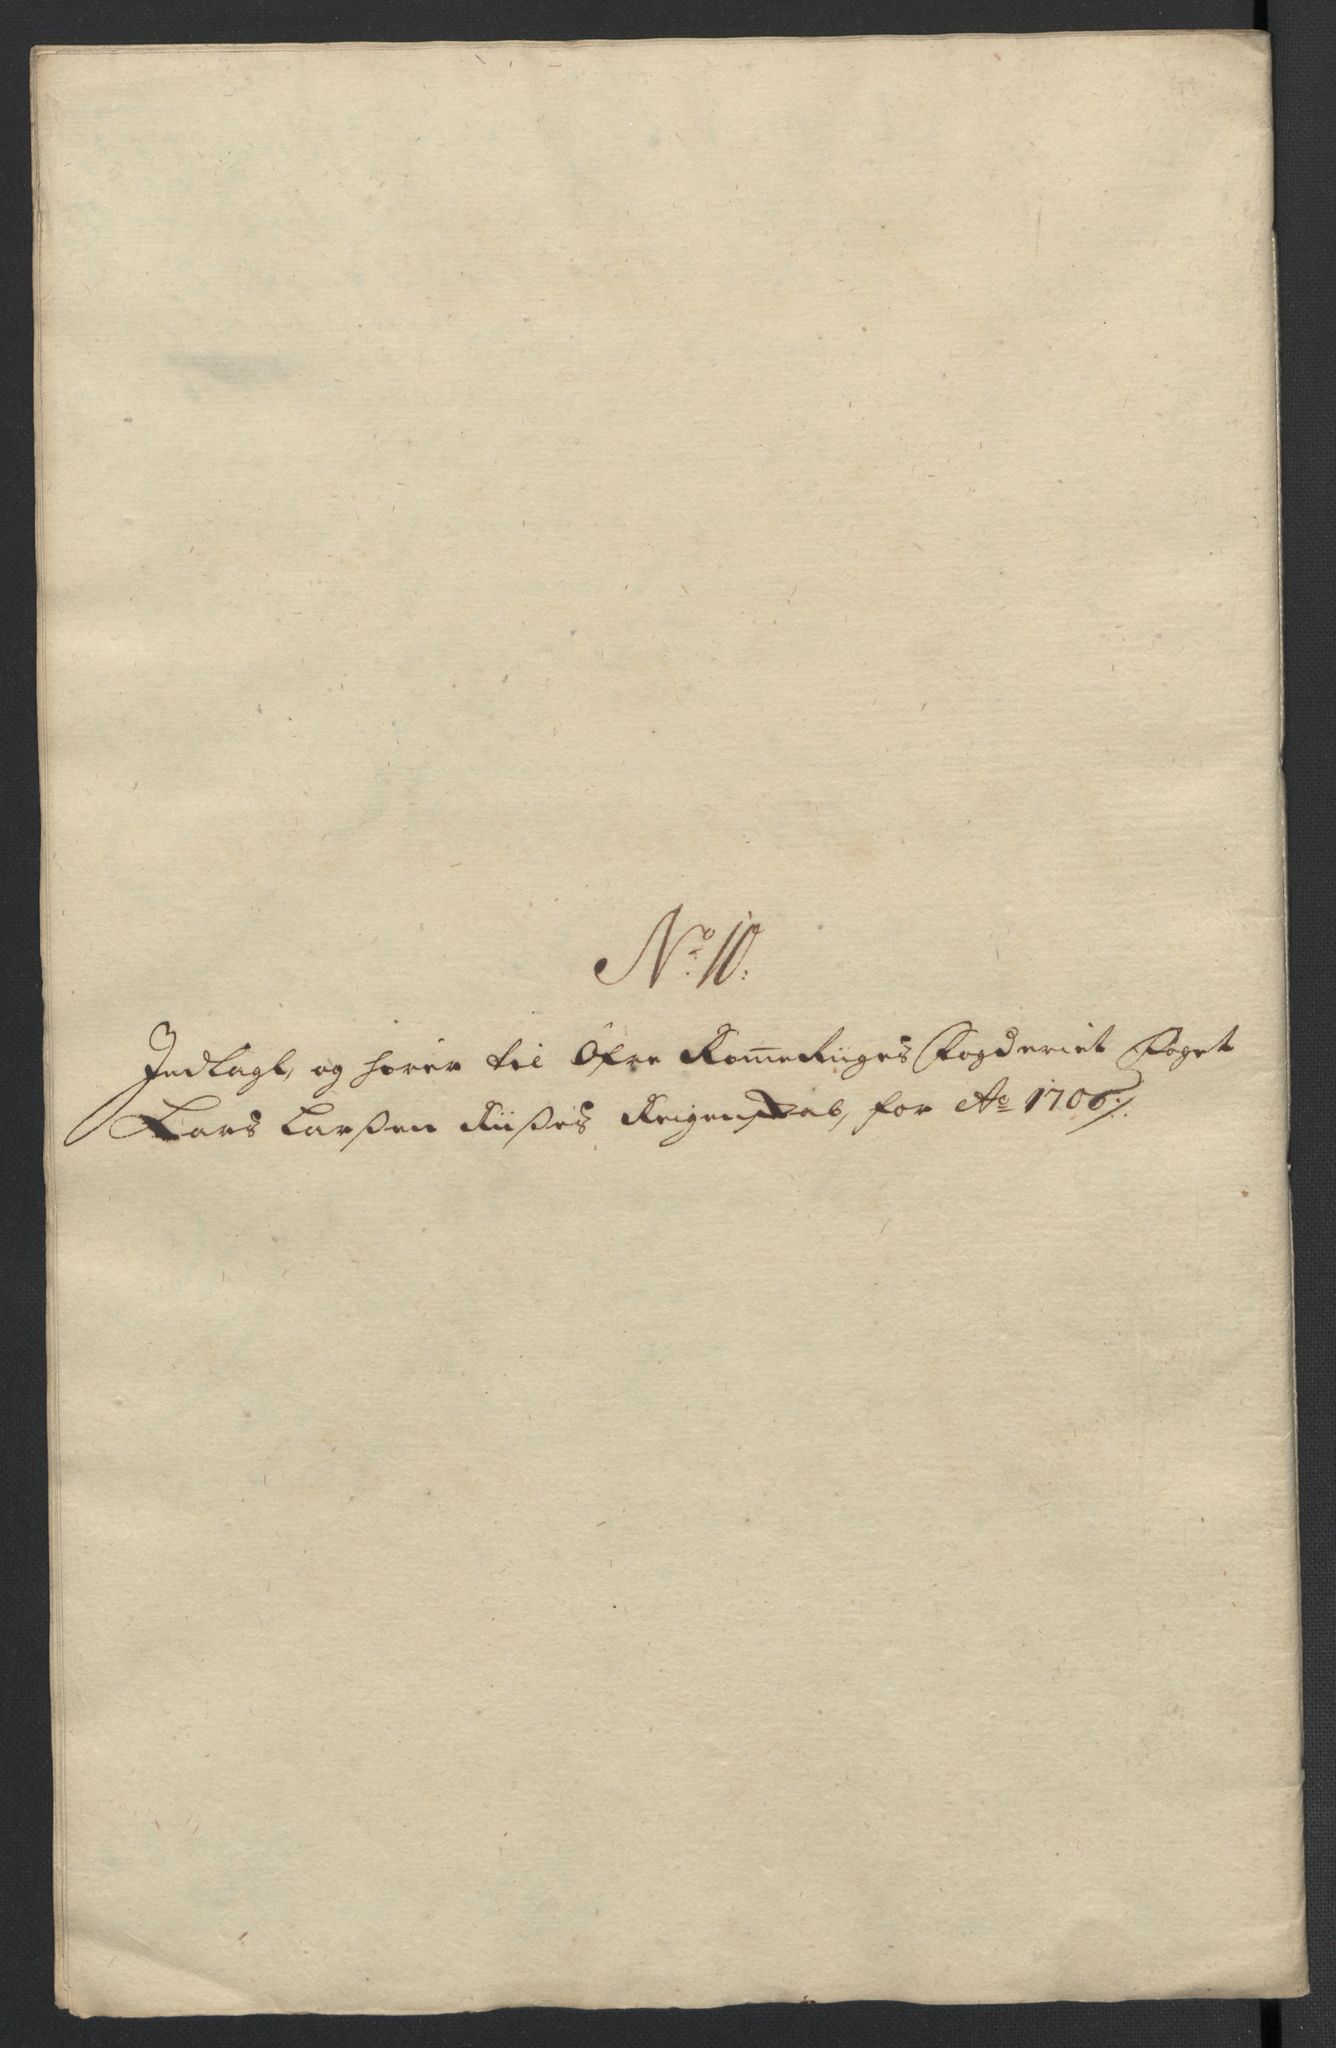 No 10.
Indlagt, og hører til Öfre Rom̄eRiiges Fogderiet Foget
Lars Larßen Riißes Reigenskab, for Ao 1706 ./.